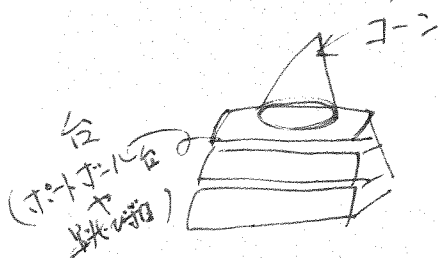 コーン
台
(ポートボール台
や
跳び箱)